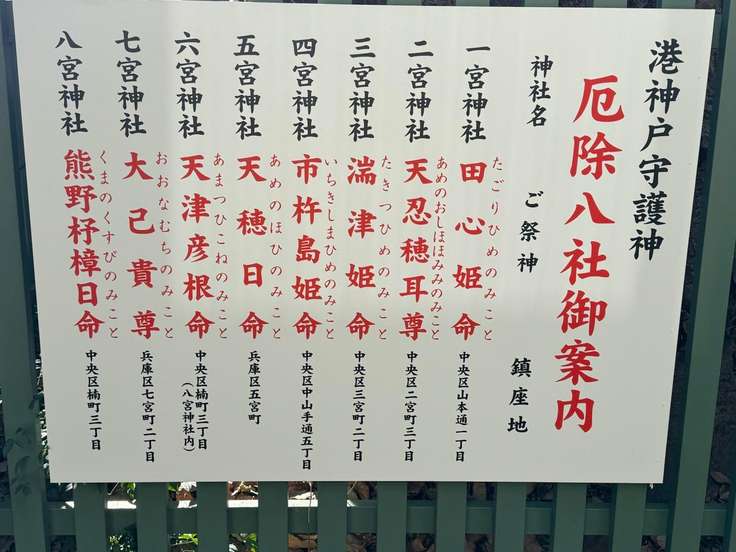 港神戸守護神
厄除八社御案内
神社名 ご祭神 鎮座地
一宮神社 田心姫命 たごりひめのみこと 中央区山本通一丁目
二宮神社 天忍穂耳尊 あめのおしほほみみのみこと 中央区二宮町三丁目
三宮神社 湍津姫命 たきつひめのみこと 中央区三宮町二丁目
四宮神社 市杵島姫命 いちきしまひめのみこと 中央区中山手通五丁目
五宮神社 天穂日命 あめのほひのみこと 兵庫区五宮町
六宮神社 天津彦根命 あまつひこねのみこと 中央区楠町三丁目
(八宮神社内)
七宮神社 大己貴尊 おおなむちのみこと 兵庫区七宮町二丁目
八宮神社 熊野杼樟日命 くまのくすびのみこと 中央区楠町三丁目